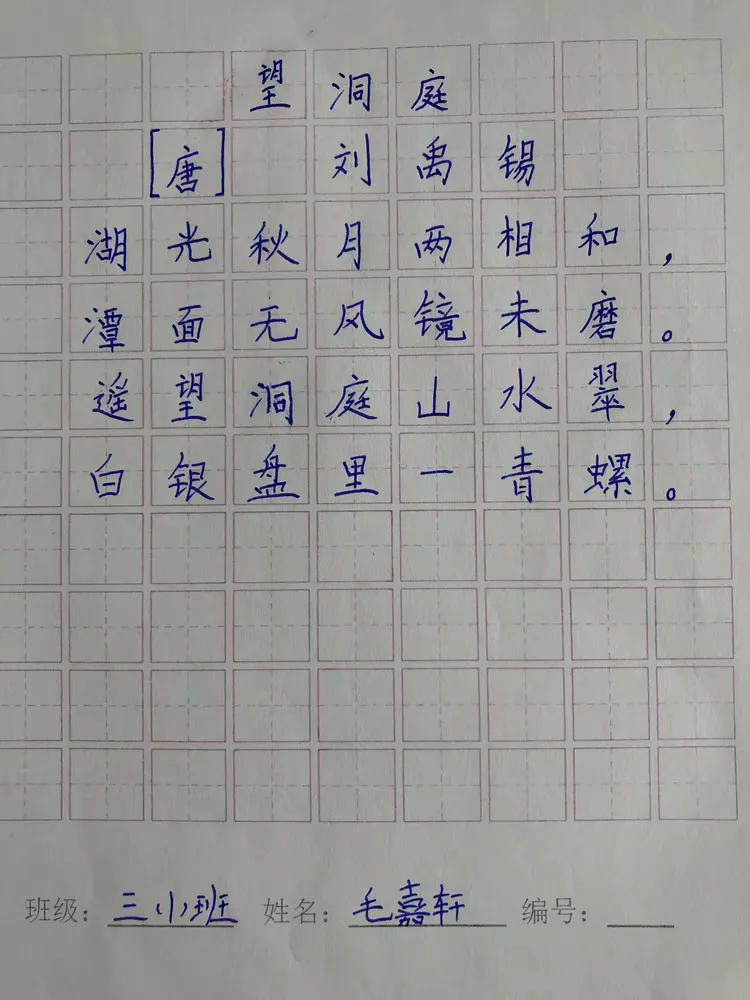 望洞庭
[唐] 刘禹锡
湖光秋月两相和，
潭面无风镜未磨。
遥望洞庭山水翠，
白银盘里一青螺。
班级：三小班 姓名：毛嘉轩 编号：